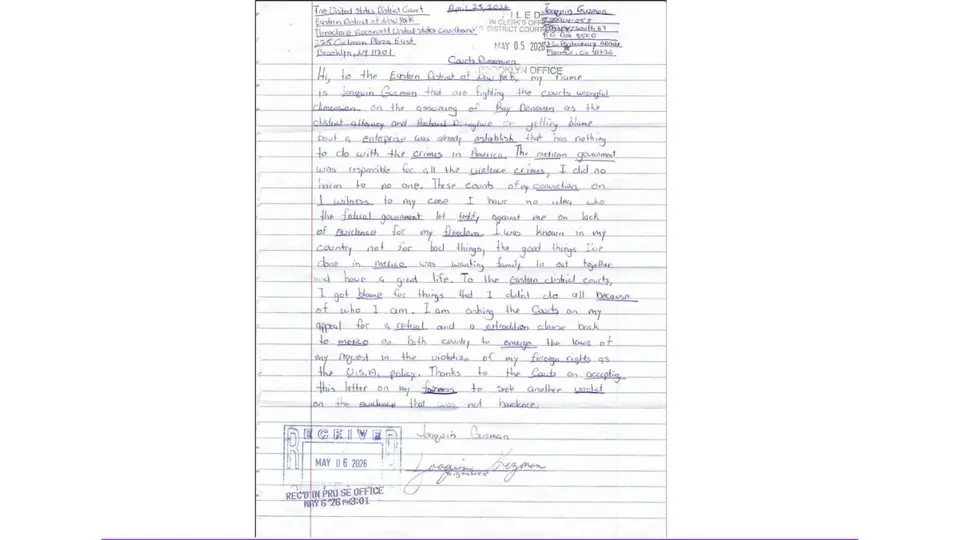 The United States District Court
Eastern District of New York
Theodore Roosevelt United States Courthouse
225 Cadman Plaza East
Brooklyn, NY 11201
April 23, 2026
FILED
IN CLERK'S OFFICE
DISTRICT COURT
MAY 05 2026
BROOKLYN OFFICE
Joaquin Guzman
P.O. Box 8500
Florence, Co
Courts Dimension
Hi, to the Eastern District of New York, my name
is Joaquin Guzman that are fighting the courts wrongful
dimension on the assuming of Ray Donovan as the
district attorney and Richard Donoghue or getting blame
bout a enterprise was already establish that has nothing
to do with the crimes in America. The mexican government
was responsible for all the violence crimes, I did no
harm to no one. These counts of my conviction on
I witness to my case I have no idea who
the federal government let testify against me on lack
of evidence for my freedom. I was known in my
country not for bad things, the good things I've
done in mexico was wanting family to eat together
and have a great life. To the Eastern district courts,
I got blame for things that I didn't do all because
of who I am. I am asking the Courts on my
appeal for a retrial and a extradition clause back
to mexico on both country to emerge the laws of
my request in the violation of my foreign rights as
the U.S.A. policy. Thanks to the Courts on accepting
this letter on my fairness to seek another verdict
on the evidence that was not
Joaquin Guzman
Joaquin Guzman
signature
RECEIVED
MAY 06 2026
REC'D IN PRO SE OFFICE
MAY 6 '26 PM3:01